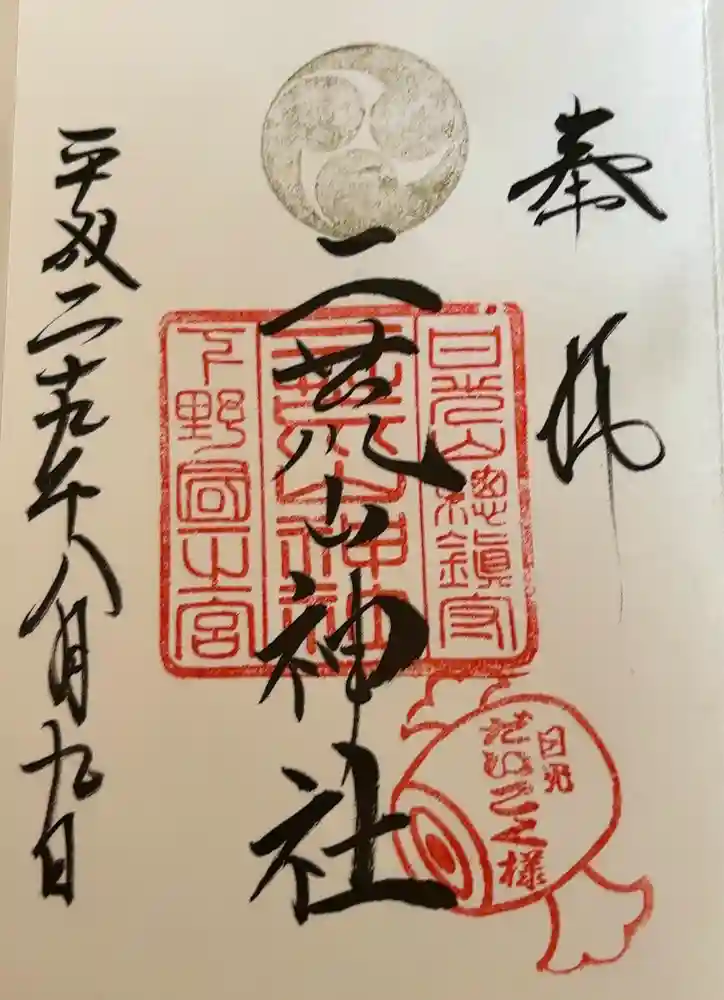 奉拝
日光山總鎮守
二荒山神社
二荒山神社
下野國一之宮
日光
だいこく様
平成二十九年八月九日